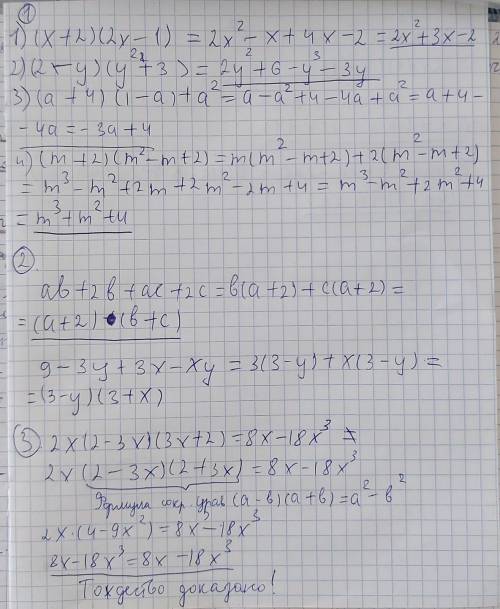 ①
1) (x+2)(2x-1) = 2x²-x+4x-2 = 2x²+3x-2
2) (2-y)(y²+3) = 2y²+6-y³-3y
3) (a+4)(1-a)+a² = a-a²+4-4a+a² = a+4-
-4a = -3a+4
4) (m+2)(m²-m+2) = m(m²-m+2)+2(m²-m+2)
= m³-m²+2m+2m²-2m+4 = m³-m²+2m²+4
= m³+m²+4
②
ab+2b+ac+2c = b(a+2)+c(a+2) =
= (a+2)•(b+c)
9-3y+3x-xy = 3(3-y)+x(3-y) =
= (3-y)(3+x)
③ 2x(2-3x)(3x+2) = 8x-18x³
2x(2-3x)(2+3x) = 8x-18x³
Формула сокр. (a-b)(a+b) = a²-b²
2x·(4-9x²) = 8x-18x³
8x-18x³ = 8x-18x³
Тождество доказано!